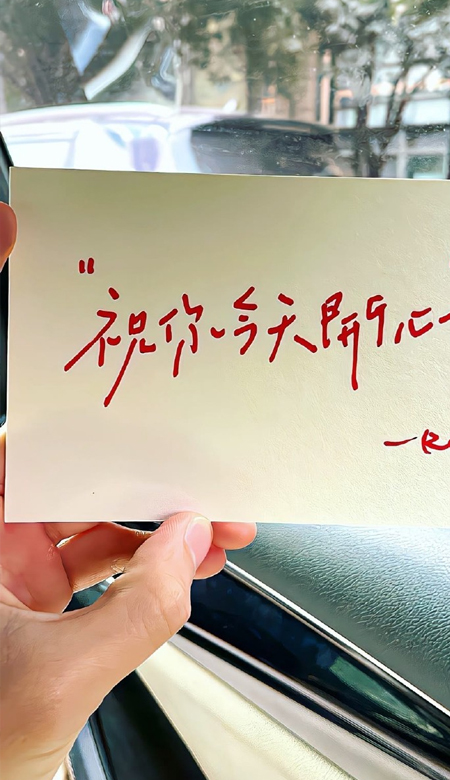 "祝你今天開心
一R